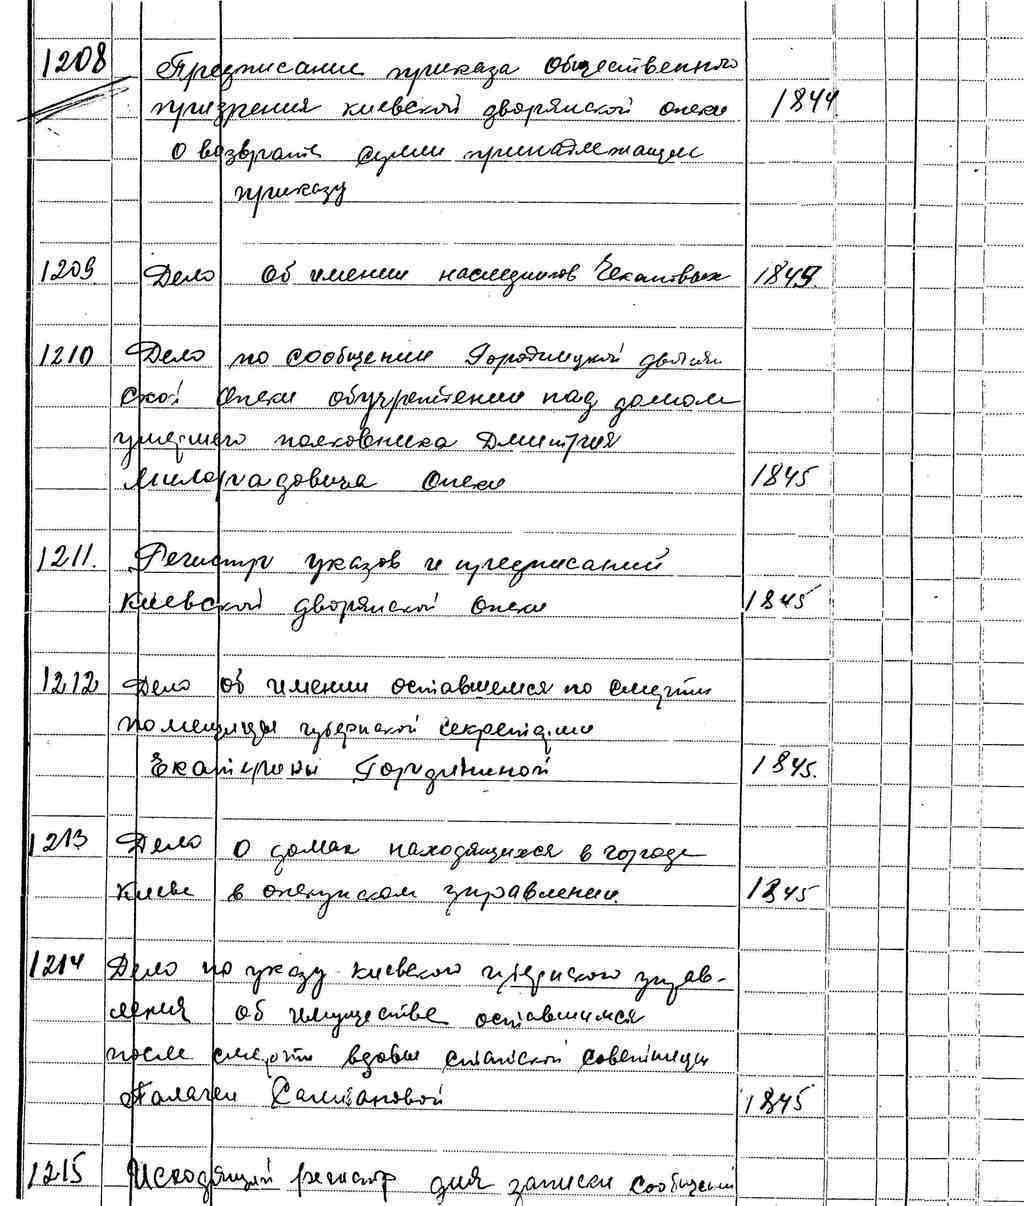 1208 Предписание приказа общественного
призрения киевской дворянской опеки 1844.
о возврате сумм принадлежащем
приказу
1209. Дело об имении наследников Чекаловых 1849.
1210 Дело по сообщении Городницкой дворян
ской опеки об учреждении над домом
умершего полковника Дмитрия
Милорадовича опеки 1845
1211. Регистр указов и предписаний
Киевской дворянской опеки 1845
1212 Дело об имении оставшемся по смерти
помещицы губернской секретарши
Екатерины 1845.
1213 Дело о домах находящихся в городе
Киеве в опекунском управлении. 1845
1214 Дело по указу киевского губернского управ-
ления об имуществе оставшимся
после смерти вдовы статской советницы
Палагеи 1845
1215 Исходящий регистр для записки сообщений